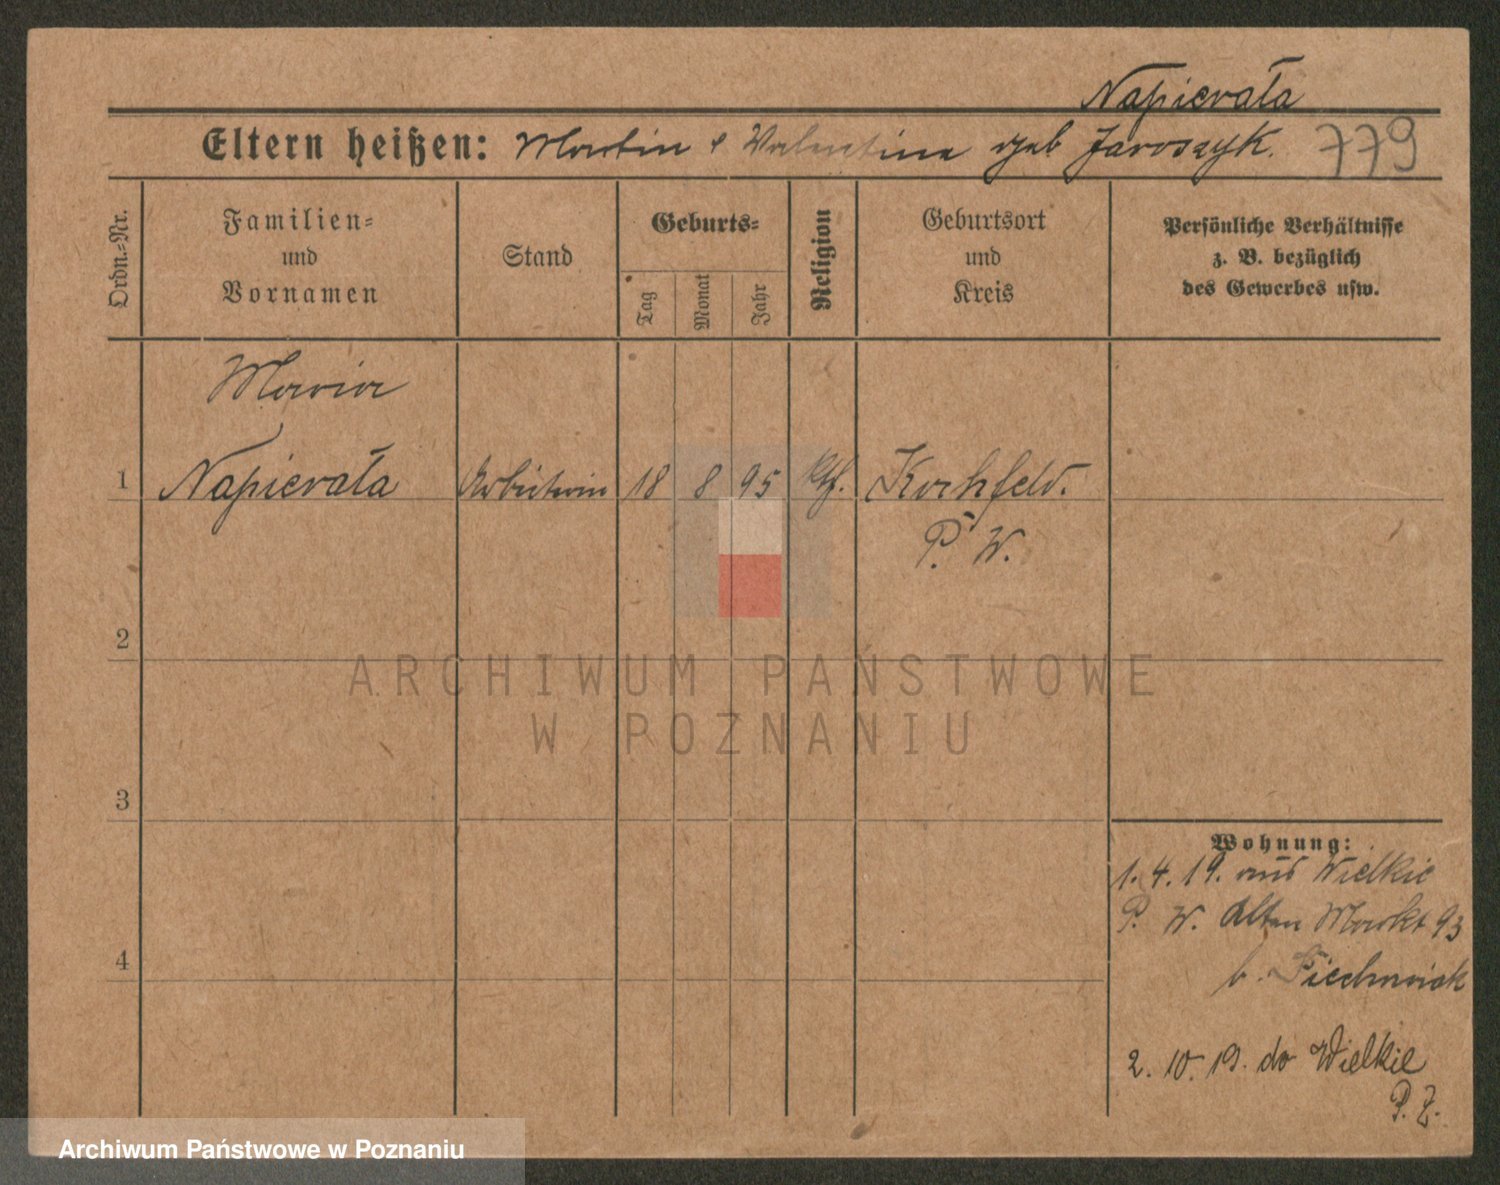 Napierała
Eltern heißen: Martin & Valentine geb Jaroszyk. 779
Ordn.-Nr.
Familien-
und
Vornamen
Stand
Geburts-
Tag
Monat
Jahr
Religion
Geburtsort
und
Kreis
Persönliche Verhältnisse
z. B. bezüglich
des Gewerbes usw.
Maria
1 Napierała Arbeiterin 18 8 95 Kth. Kirchfeld.
P. W.
2
ARCHIWUM PAŃSTWOWE
W POZNANIU
3
Wohnung:
1. 4. 19. aus Wielkie
P. W. Alten Markt 93
4
b. Piechowiak
2. 10. 19. do Wielkie
P. Z.
Archiwum Państwowe w Poznaniu